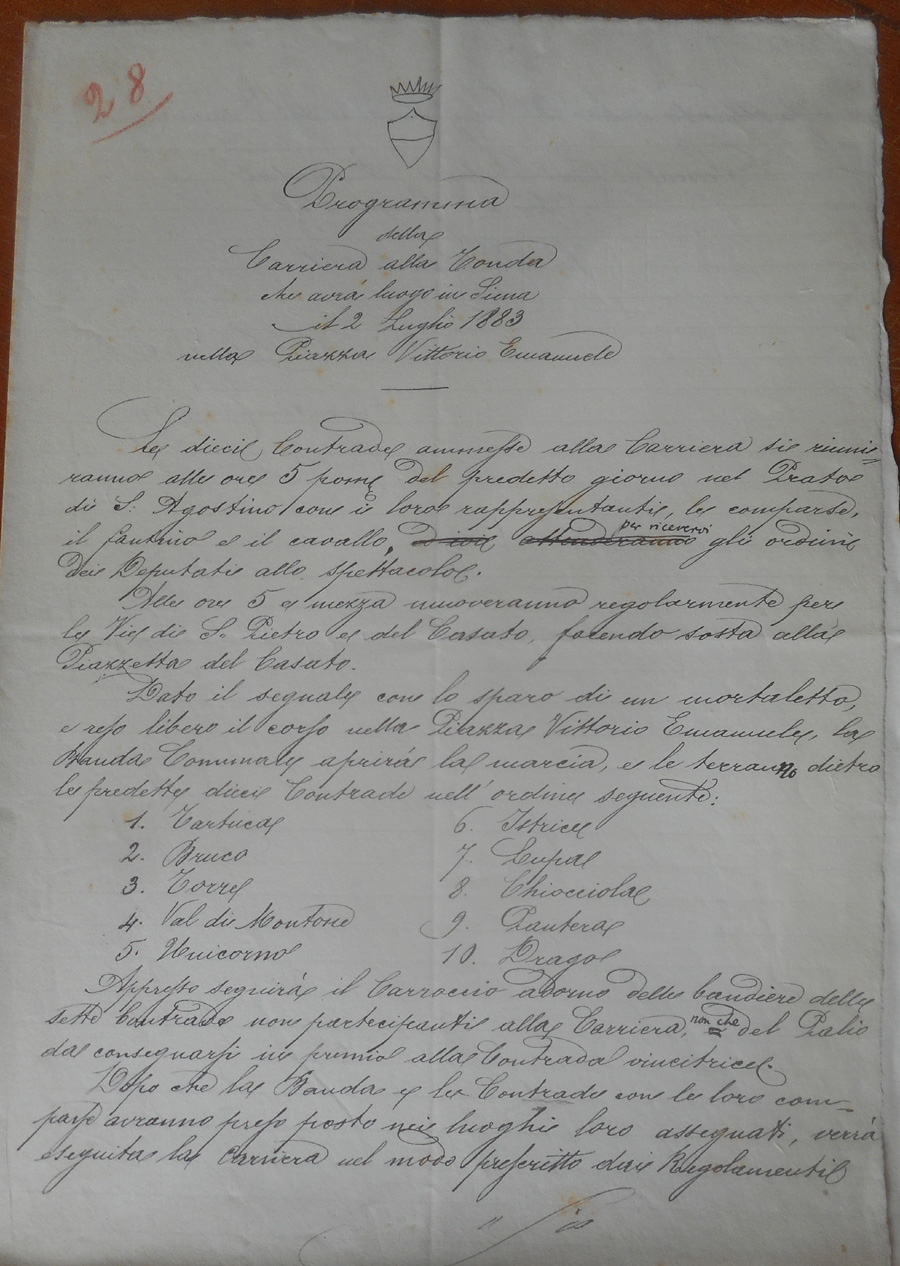 28
Programma
della
Carriera alla Tonda
che avrà luogo in Siena
il 2 Luglio 1883
nella Piazza Vittorio Emanuele
Le dieci Contrade ammesse alla Carriera si riuni-
ranno alle ore 5 pome del predetto giorno nel Prato
di S. Agostino con i loro rappresentanti, le comparse,
per riceversi
il fantino e il cavallo, attenderanno gli ordini
dei Deputati allo spettacolo.
Alle ore 5 e mezza muoveranno regolarmente per
le Vie di S. Pietro e del Casato, facendo sosta alla
Piazzetta del Casato.
Dato il segnale con lo sparo di un mortaletto,
e reso libero il corso nella Piazza Vittorio Emanuele, la
Banda Comunale aprirà la marcia, e le terranno dietro
le predette dieci Contrade nell'ordine seguente:
1. Tartuca
2. Bruco
3. Torre
4. Val di Montone
5. Unicorno
6. Istrice
7. Lupa
8. Chiocciola
9. Pantera
10. Drago
Appresso seguirà il Carroccio adorno delle bandiere delle
sette Contrade non partecipanti alla Carriera, non che del Palio
da consegnarsi in premio alla Contrada vincitrice.
Dopo che la Banda e le Contrade con le loro com-
parse avranno preso posto nei luoghi loro assegnati, verrà
eseguita la Carriera nel modo prescritto dai Regolamenti